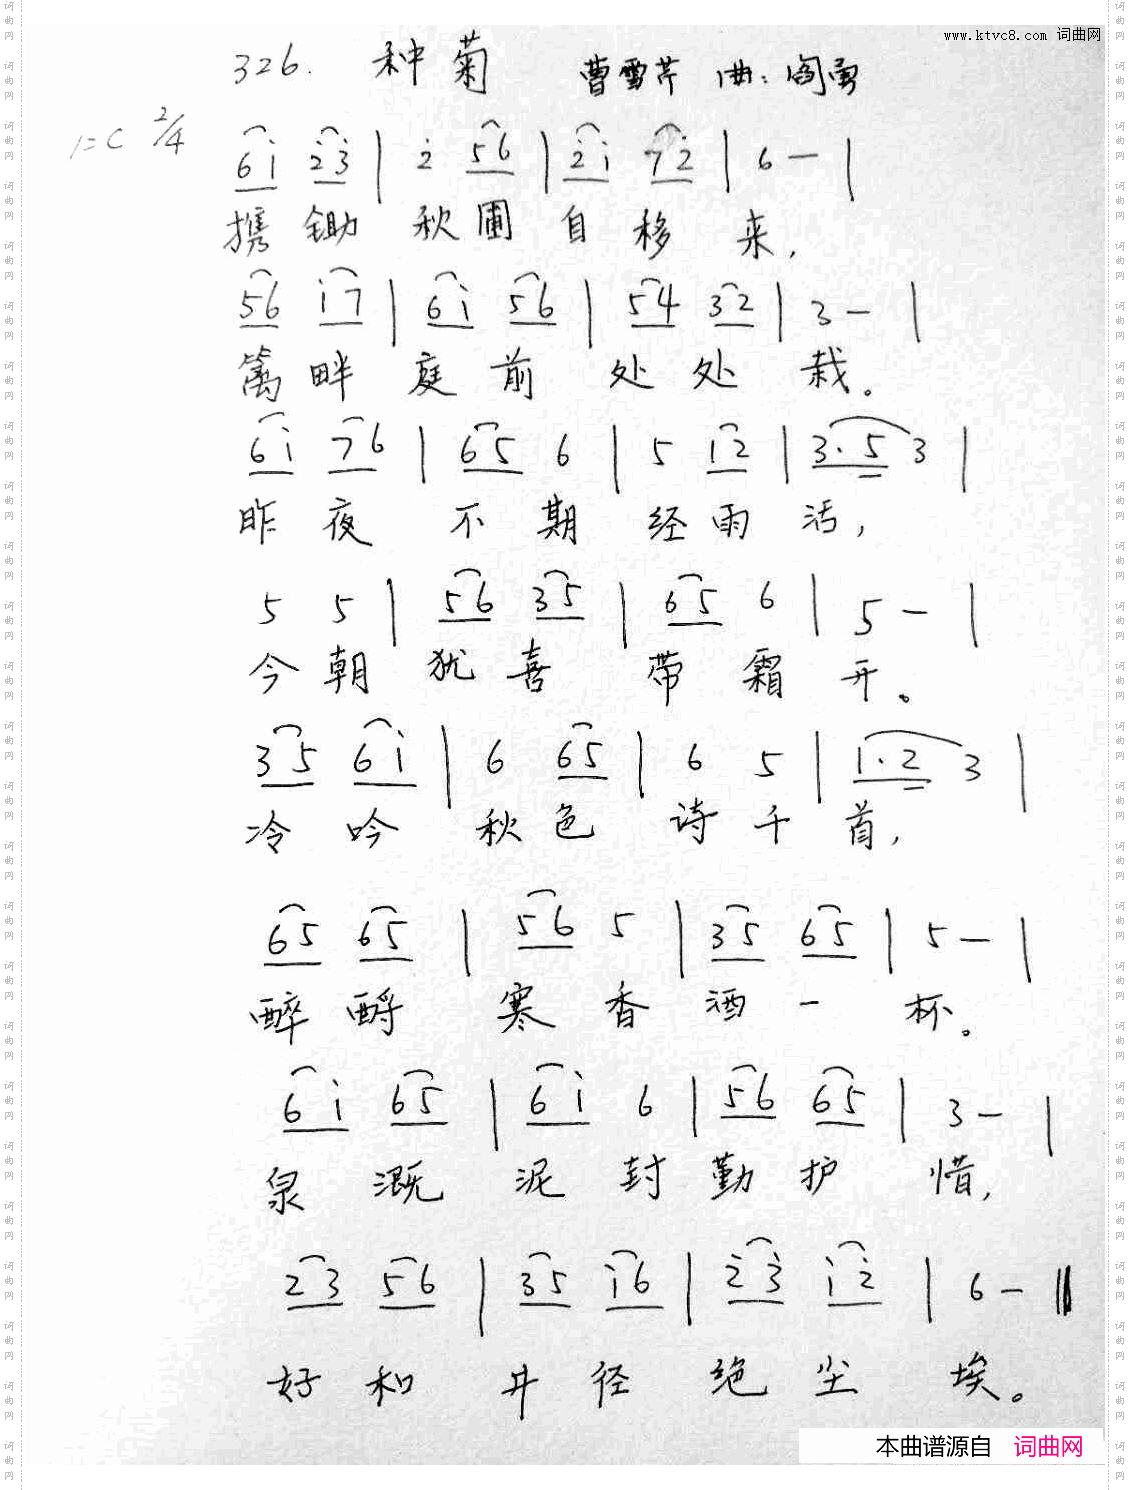 www.ktvc8.com 词曲网
326. 种菊 曹雪芹 曲：阎勇
1=C 2/4
6i̇ 2̇3̇ | 2̇ 56 | 2̇i̇ 72̇ | 6 — |
携锄秋圃自移来，
56 i̇7 | 6i̇ 56 | 54 32 | 3 — |
篱畔庭前处处栽。
6i̇ 76 | 65 6 | 5 12 | 3·5 3 |
昨夜不期经雨活，
5 5 | 56 35 | 65 6 | 5 — |
今朝犹喜带霜开。
35 6i̇ | 6 65 | 6 5 | 1·2 3 |
冷吟秋色诗千首，
65 65 | 56 5 | 35 65 | 5 — |
醉酹寒香酒一杯。
6i̇ 65 | 6i̇ 6 | 56 65 | 3 — |
泉溉泥封勤护惜，
23 56 | 35 i̇6 | 2̇3̇ i̇2̇ | 6 — ‖
好和井径绝尘埃。
本曲谱源自 词曲网